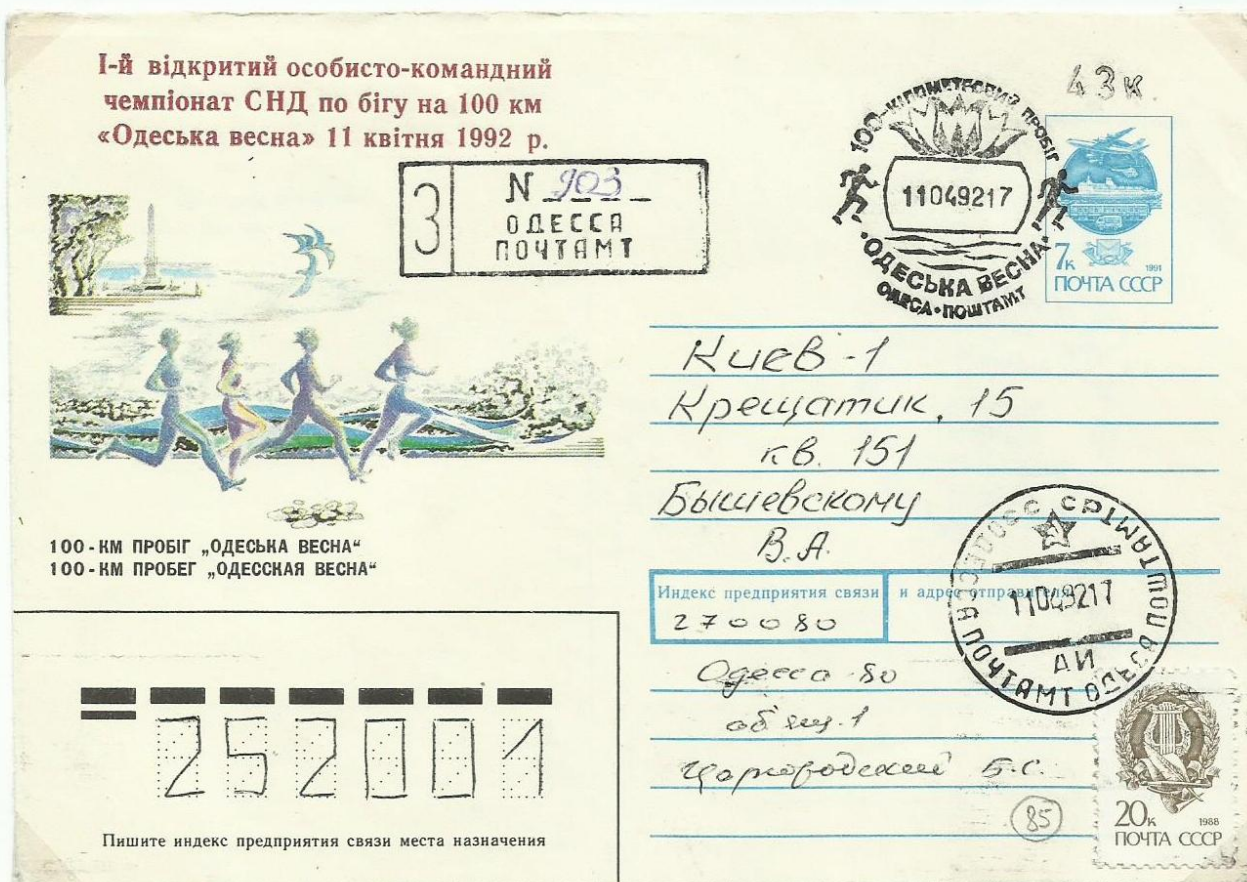 І-й відкритий особисто-командний
чемпіонат СНД по бігу на 100 км
«Одеська весна» 11 квітня 1992 р.
З
N 903
ОДЕССА
ПОЧТАМТ
43к
100-КІЛОМЕТРОВИЙ ПРОБІГ
11049217
·ОДЕСЬКА ВЕСНА·
ОДЕСА·ПОШТАМТ
7к
1991
ПОЧТА СССР
Киев-1
Крещатик, 15
кв. 151
Бышевскому
В.А.
100-КМ ПРОБІГ „ОДЕСЬКА ВЕСНА“
100-КМ ПРОБЕГ „ОДЕССКАЯ ВЕСНА“
Индекс предприятия связи
и адрес отправителя
270080
СССР
11049217
АИ
ОДЕССА ПОЧТАМТ ОДЕСА ПОШТАМТ
Одесса-80
об щ.1
Б.С.
252001
Пишите индекс предприятия связи места назначения
85
20к
1988
ПОЧТА СССР